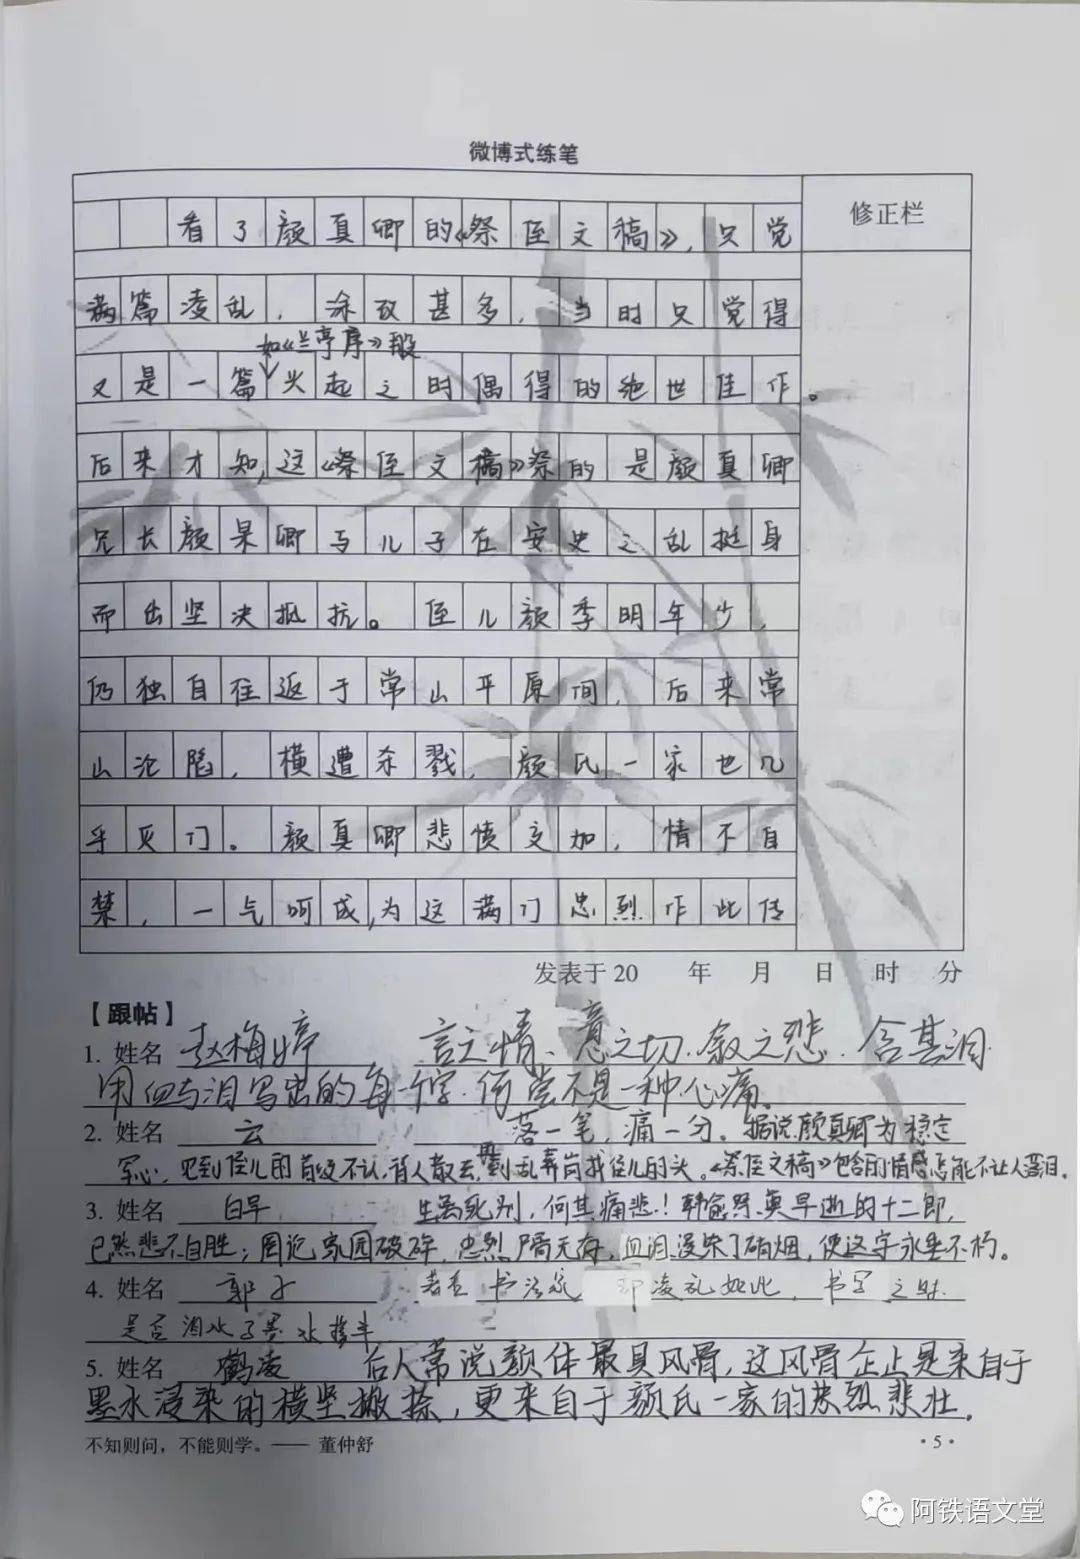 微博式练笔
修正栏
看了颜真卿的《祭侄文稿》，只觉
满篇凌乱，涂改甚多，当时只觉得
如《兰亭序》般
又是一篇兴起之时偶得的绝世佳作。
后来才知，这《祭侄文稿》祭的是颜真卿
兄长颜杲卿与儿子在安史之乱挺身
而出坚决抵抗。侄儿颜季明年少，
仍独自往返于常山平原间，后来常
山沦陷，横遭杀戮，颜氏一家也几
乎灭门。颜真卿悲愤交加，情不自
禁，一气呵成，为这满门忠烈作此传
发表于 20 年 月 日 时 分
【跟帖】
1. 姓名 赵梅婷 言之情、意之切、叙之悲、含其泪
用血与泪写出的每一字，何尝不是一种心痛。
2. 姓名 云 落一笔，痛一分。据说颜真卿为稳定
军心，见到侄儿的首级不认，待人散去，到乱葬岗找侄儿的头。《祭侄文稿》包含的情感怎能不让人落泪。
3. 姓名 白早 生离死别，何其痛悲！韩愈祭奠早逝的十二郎，
已然悲不自胜；国沦家园破碎，忠烈尸骨无存，血泪浸染了硝烟，使这字永垂不朽。
4. 姓名 郭子 书法家 却凌乱如此，书写之时，
是否泪水与墨水掺半
5. 姓名 鹤凌 后人常说颜体最具风骨，这风骨岂止是来自于
墨水浸染的横竖撇捺，更来自于颜氏一家的忠烈悲壮。
不知则问，不能则学。—— 董仲舒
·5·
阿铁语文堂